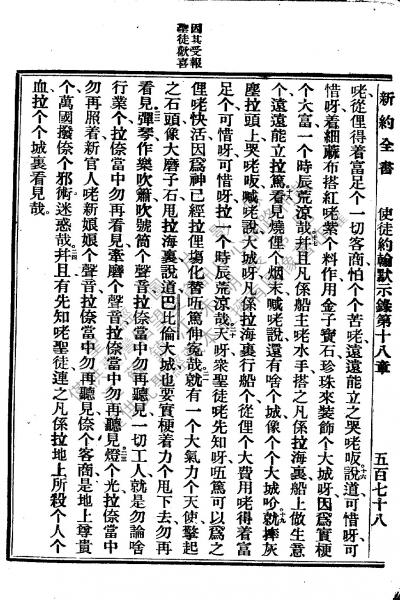 因其受報
聖徒歡喜
新約全書 使徒約翰默示錄第十八章 五百七十八
咾從俚得着富足个一切客商怕个个苦咾遠遠能立之哭咾呎說道可惜呀可
惜呀着細蔴布搭紅咾紫个料作用金子寶石珍珠來裝飾个大城呀因爲實梗
个大富一个時辰荒涼哉幷且凡係船主咾水手搭之凡係拉海裏船上做生意
个遠遠能立拉篤看見燒俚个烟末喊咾說還有啥个城像个个大城吤就摔灰
塵拉頭上哭咾呎喊咾說大城呀凡係拉海裏行船个從俚个大費用咾得着富
足个可惜呀可惜呀拉一个時辰荒涼哉天呀衆聖徒咾先知呀㑚篤可以爲之
俚咾快活因爲神已經拉俚搿化替㑚篤伸寃哉就有一个大氣力个天使擎起
之石頭像大磨子石甩拉海裏說道巴比倫大城也要實梗着力个甩下去勿再
看見彈琴作樂吹簫吹號筒个聲音拉倷當中勿再聽見一切工人就是勿論啥
行業个拉倷當中勿再看見牽磨个聲音拉倷當中勿再聽見燈个光拉倷當中
勿再照着新官人咾新娘娘个聲音拉倷當中勿再聽見倷个客商是地上尊貴
个萬國撥倷个邪術迷惑哉幷且有先知咾聖徒連之凡係拉地上所殺个人个
血拉个个城裏看見哉